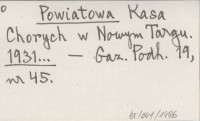 Powiatowa Kasa
Chorych w Nowym Targu.
1931... — Gaz. Podh. 19,
nr 45.